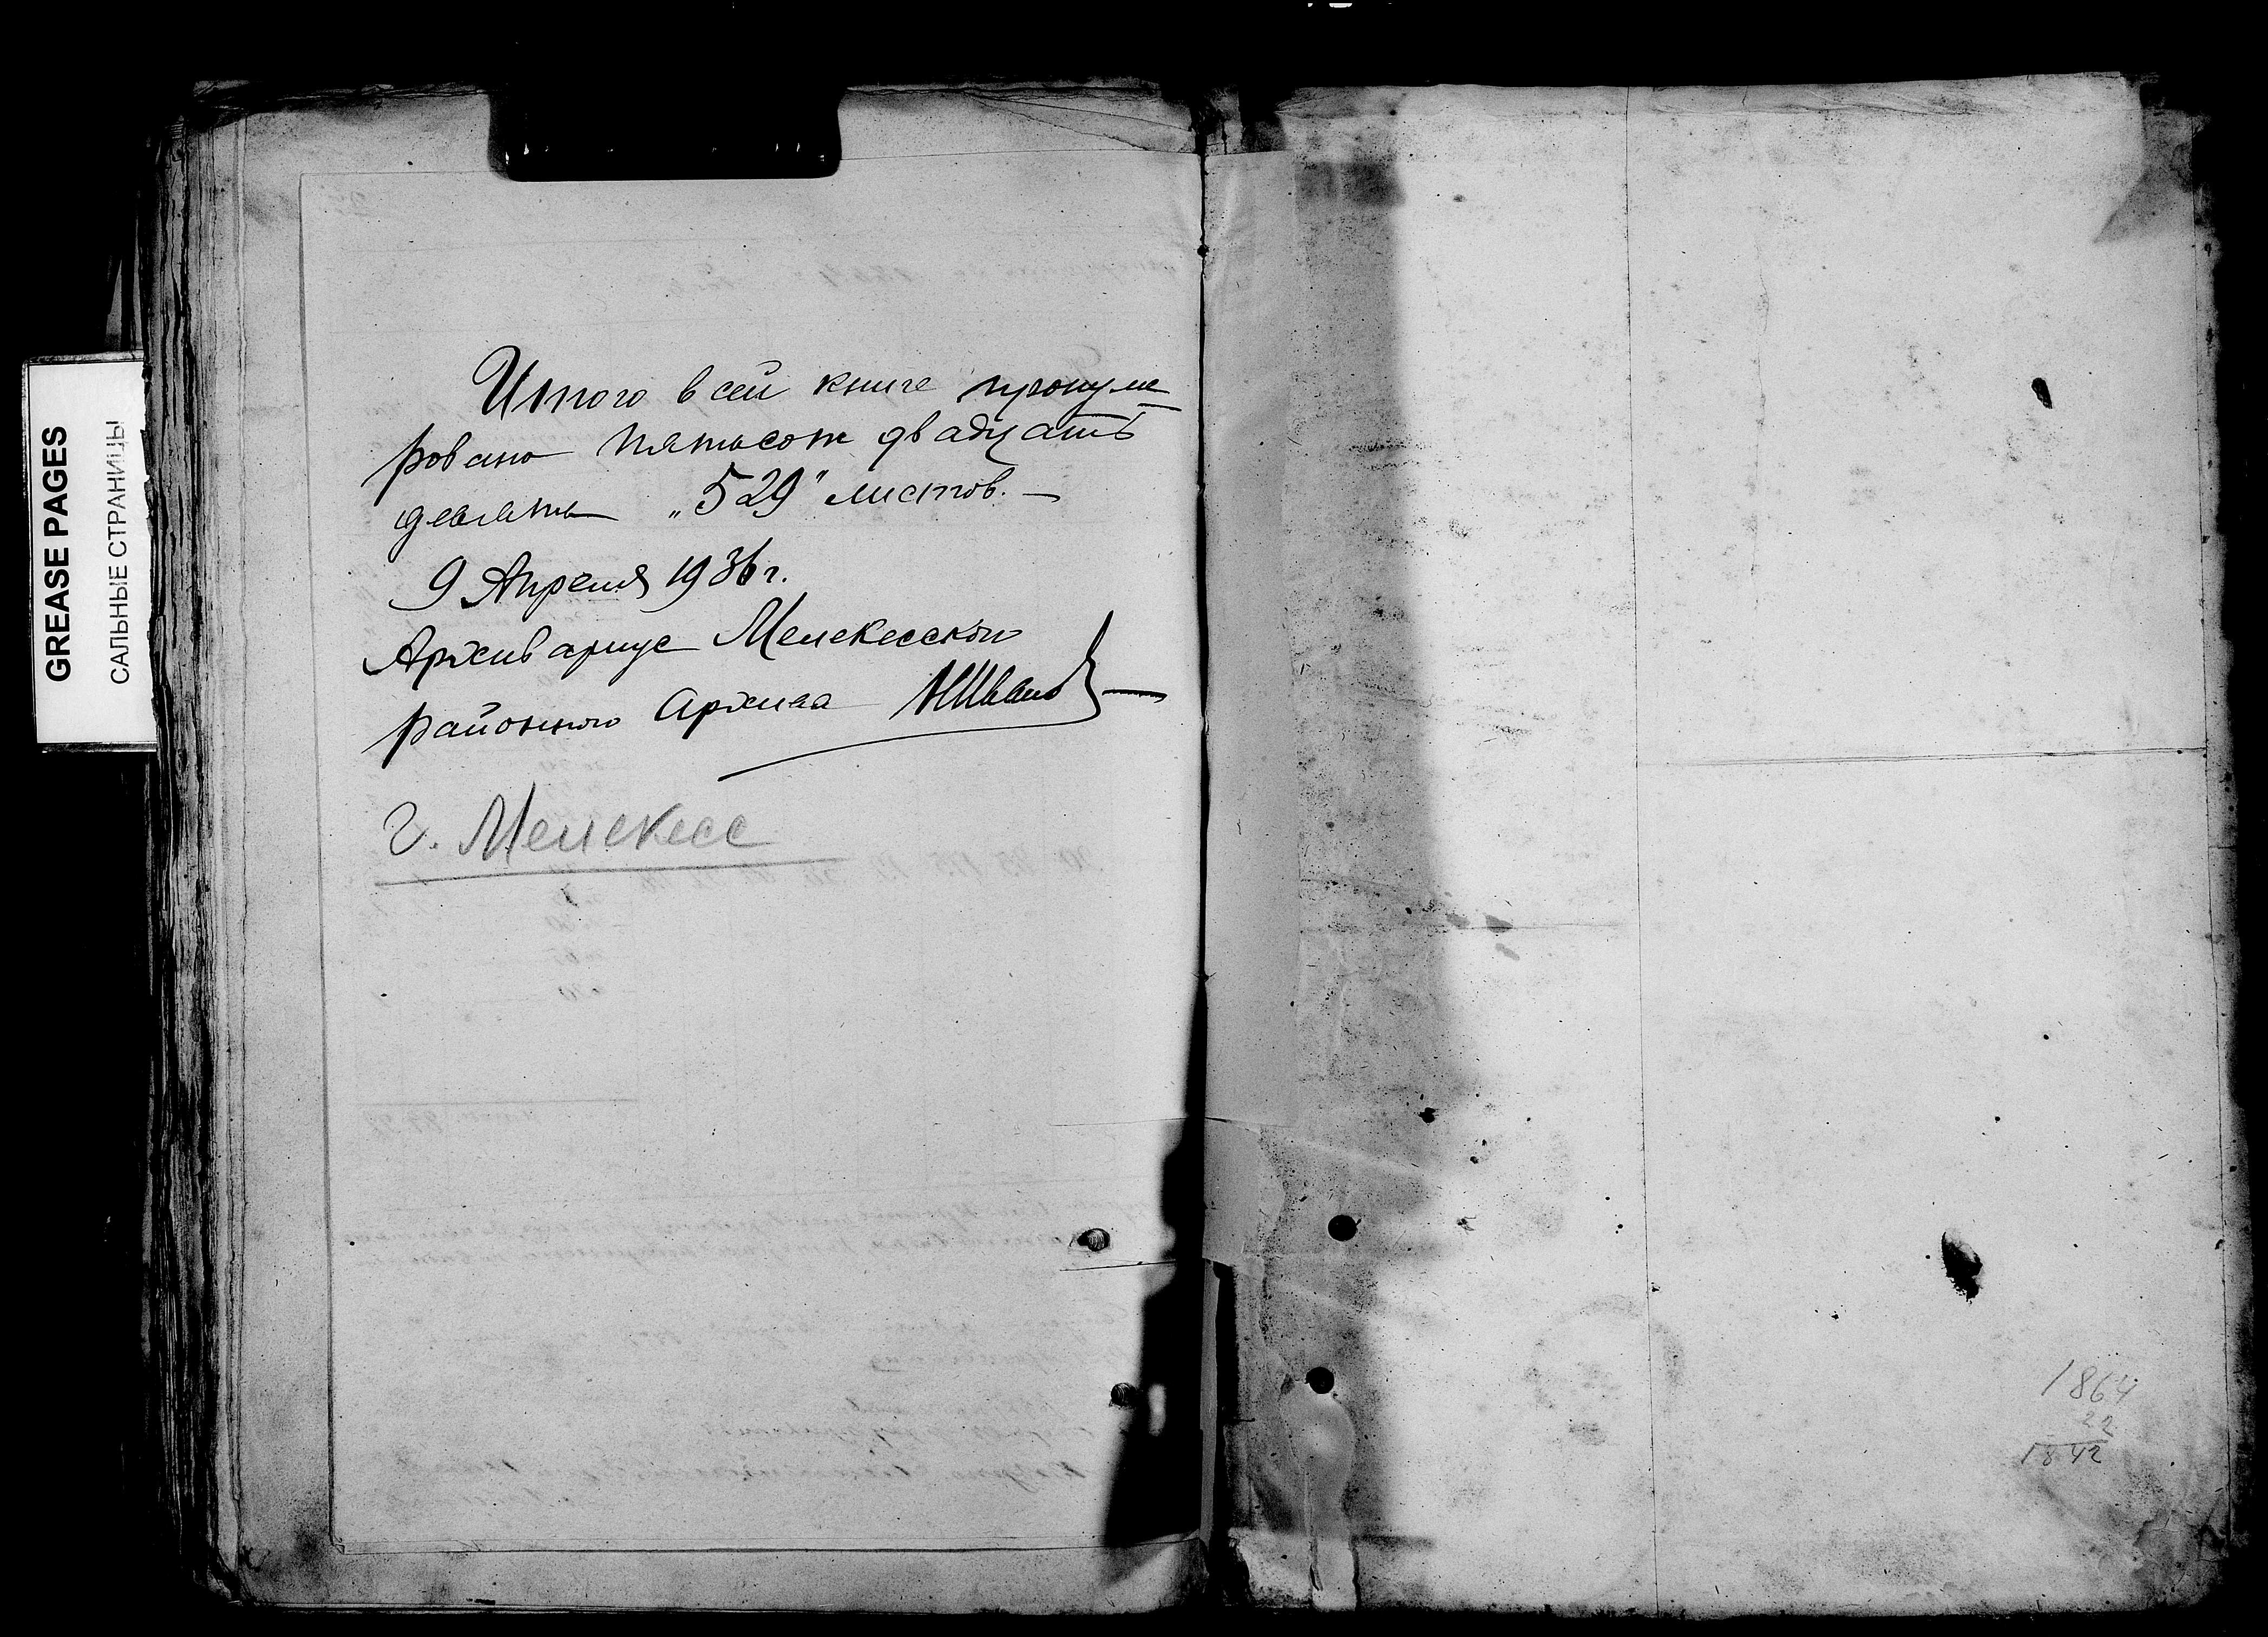 GREASE PAGES
САЛЬНЫЕ СТРАНИЦЫ
Итого в сей книге пронуме
ровано пятьсот двадцать
девять „529" листов. —
9 Апреля 1936 г.
Архивариус Мелекесского
районного Архива НИванов
г. Мелекесс
1864
22
1842